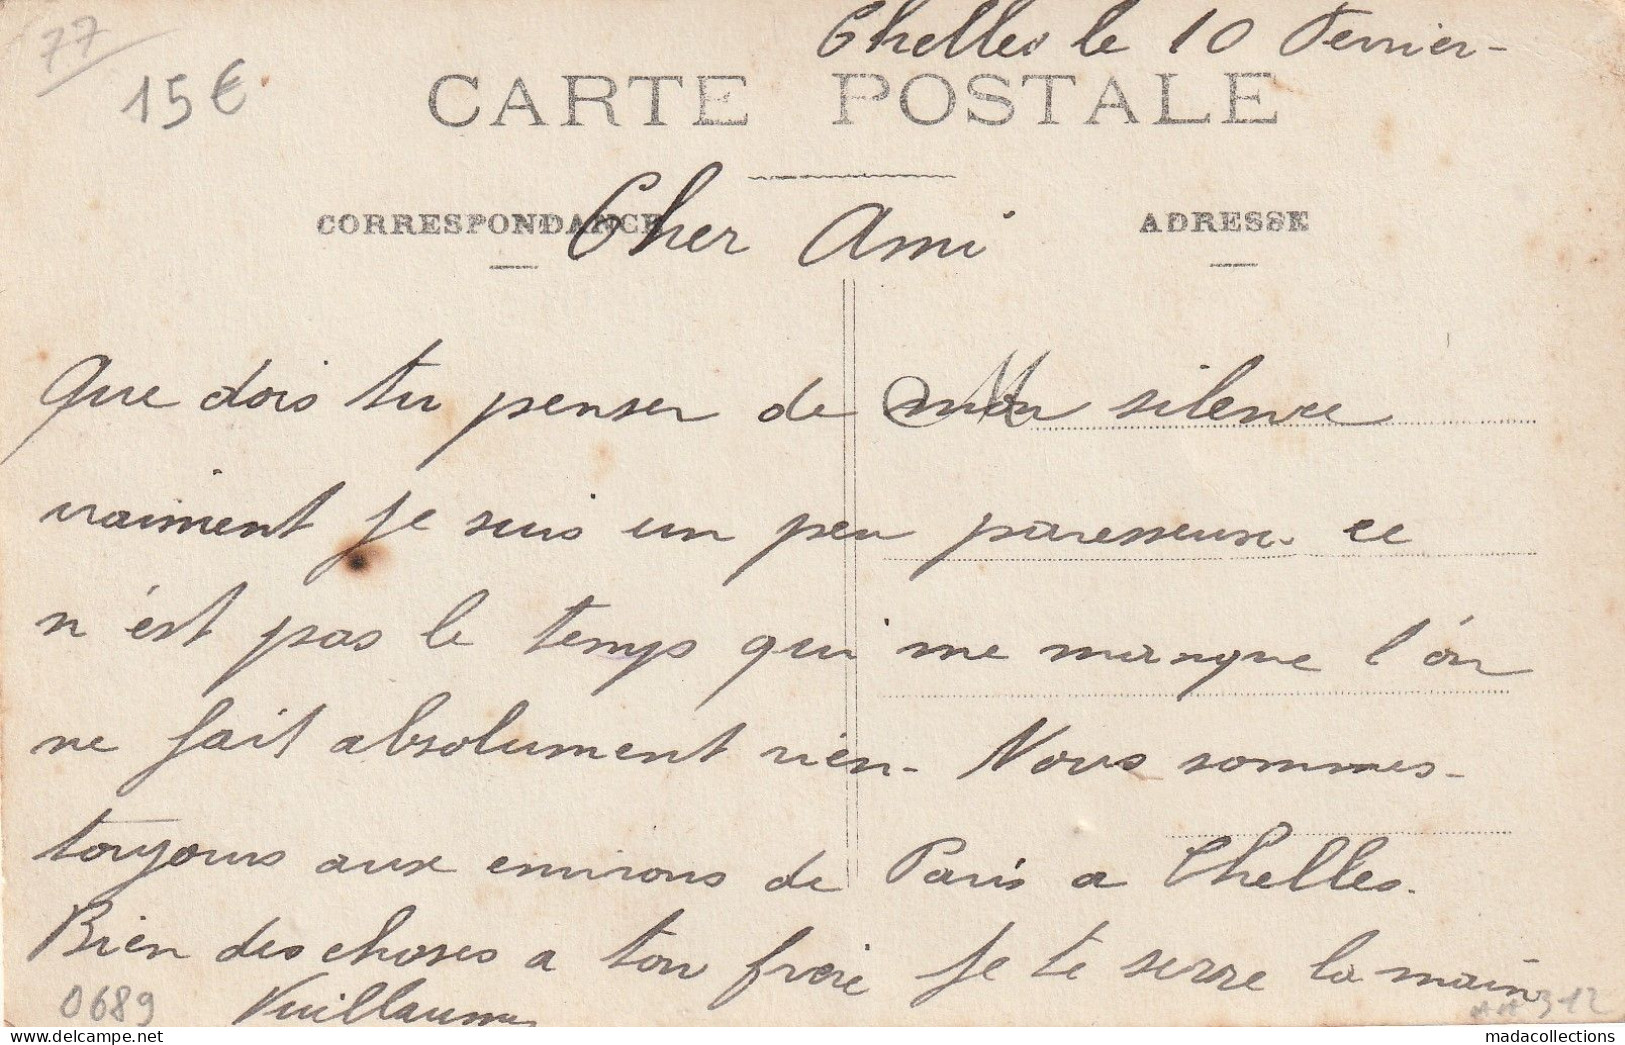 77
Chelles le 10 Fevrier-
15€
CARTE POSTALE
CORRESPONDANCE
ADRESSE
Cher Ami
Que dois tu penser de mon silence
vraiment je suis un peu paresseux. ce
n'est pas le temps qui me manque l'on
ne fait absolument rien. Nous sommes
toujours aux environs de Paris a Chelles.
Bien des choses a ton frere je te serre la main
0689
Vuillaume
312
madacollections